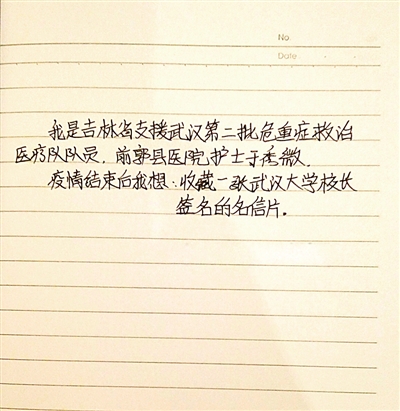 No
Date
我是吉林省支援武汉第二批危重症救治
医疗队队员，前郭县医院护士于秀微。
疫情结束后我想：收藏一张武汉大学校长
签名的名信片。